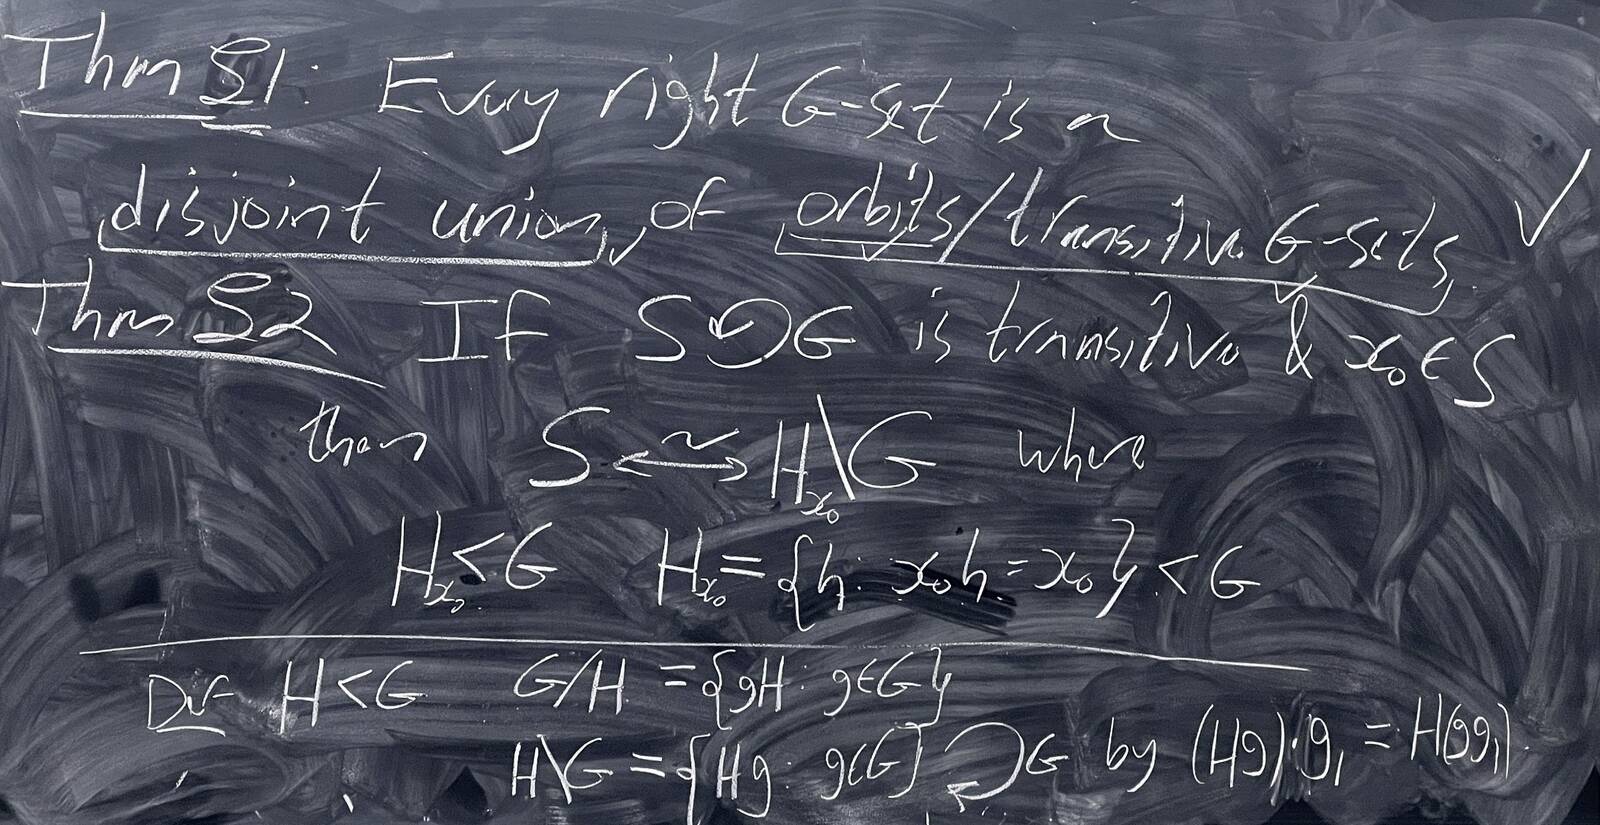 Thm S1: Every right G-set is a
disjoint union of orbits/transitive G-sets ✓
Thm S2 If S↺G is transitive & x₀∈S
then S ⟷̃ H_{x₀}\G where
H_{x₀}<G H_{x₀}={h: x₀h=x₀}<G
Def H<G G/H={gH: g∈G}
H\G={Hg: g∈G}↺G by (Hg)·g₁=H(gg₁).